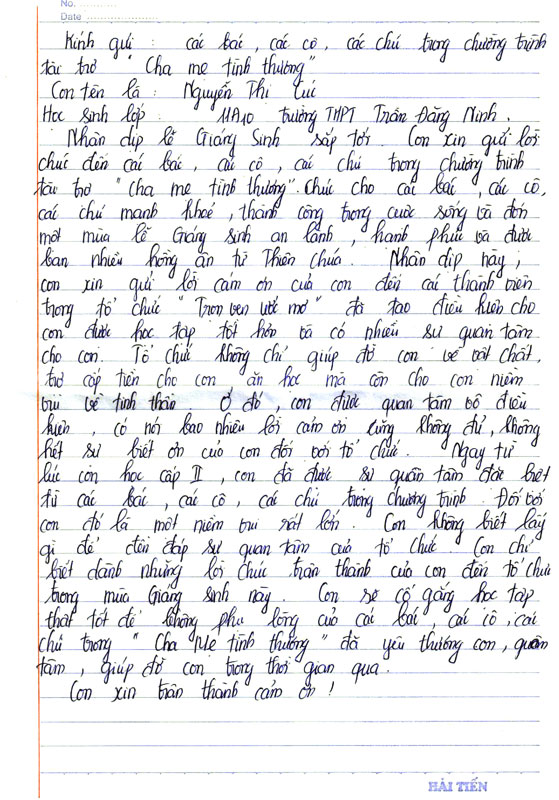 No.
Date
Kính gửi : các bác, các cô, các chú trong chương trình
tài trợ " Cha mẹ tình thương"
Con tên là : Nguyễn Thị Cúc
Học sinh lớp : 11A10 trường THPT Trần Đăng Ninh.
Nhân dịp lễ Giáng Sinh sắp tới. Con xin gửi lời
chúc đến các bác, các cô, các chú trong chương trình
tài trợ "cha mẹ tình thương". Chúc cho các bác, các cô,
các chú mạnh khoẻ, thành công trong cuộc sống và đón
một mùa lễ Giáng sinh an lành, hạnh phúc và được
ban nhiều hồng ân từ Thiên Chúa. Nhân dịp này,
con xin gửi lời cảm ơn của con đến các thành viên
trong tổ chức " Trọn vẹn ước mơ " đã tạo điều kiện cho
con được học tập tốt hơn và có nhiều sự quan tâm
cho con. Tổ chức không chỉ giúp đỡ con về vật chất,
trợ cấp tiền cho con ăn học mà còn cho con niềm
vui về tinh thần Ở đó, con được quan tâm vô điều
kiện, có nói bao nhiêu lời cảm ơn cũng không đủ, không
hết sự biết ơn của con đối với tổ chức. Ngay từ
lúc còn học cấp II, con đã được sự quan tâm đặc biệt
từ các bác, các cô, các chú trong chương trình. Đối với
con đó là một niềm vui rất lớn. Con không biết lấy
gì để đền đáp sự quan tâm của tổ chức. Con chỉ
biết dành những lời chúc trân thành của con đến tổ chức
trong mùa Giáng sinh này. Con sẽ cố gắng học tập
thật tốt để không phụ lòng của các bác, các cô, các
chú trong " Cha Mẹ tình thương" đã yêu thương con, quan
tâm, giúp đỡ con trong thời gian qua.
Con xin trân thành cảm ơn !
HẢI TIẾN